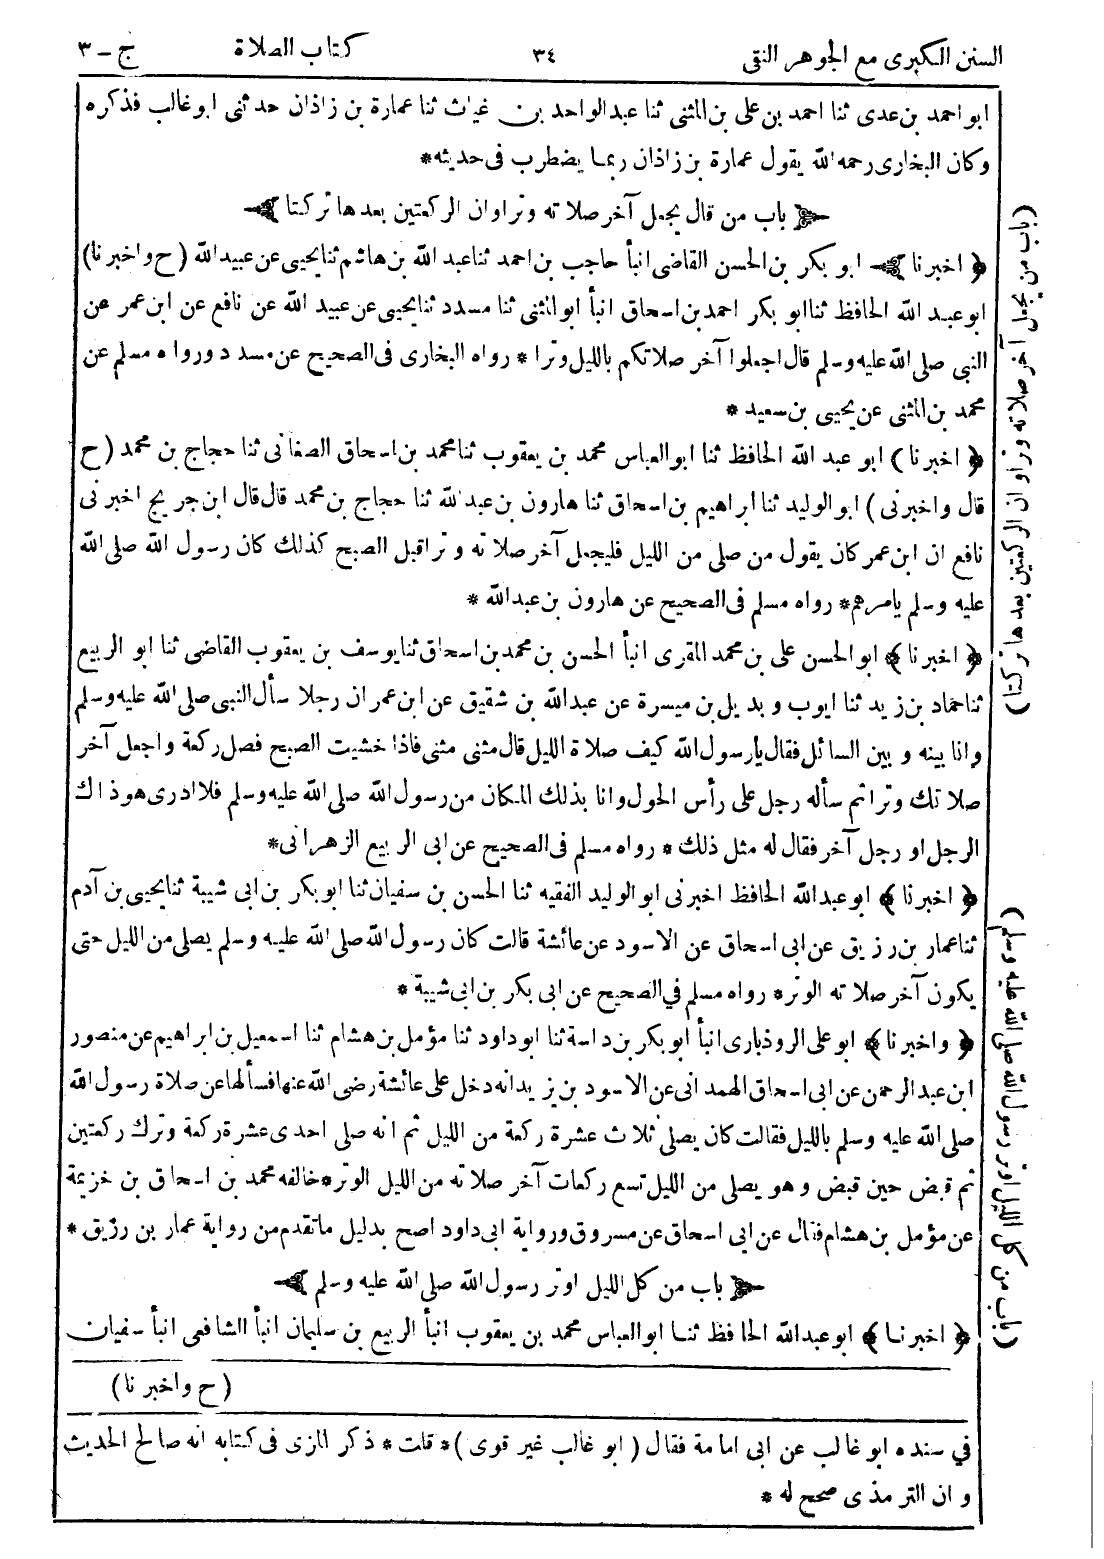 السنن الكبرى مع الجوهر النقى ٣٤ كتاب الصلاة ج - ٣
ابو احمد بن عدى ثنا احمد بن على بن المثنى ثنا عبد الواحد بن غياث ثنا عمارة بن زاذان حدثنى ابو غالب فذكره
وكان البخارى رحمه الله يقول عمارة بن زاذان ربما يضطرب فى حديثه *
باب من قال يجعل آخر صلاته وترا وان الركعتين بعدها تركتا
﴿ اخبرنا ﴾ ابو بكر بن الحسن القاضى انبأ حاجب بن احمد ثنا عبد الله بن هاشم ثنا يحيى عن عبيد الله (ح واخبرنا)
ابو عبد الله الحافظ ثنا ابو بكر احمد بن اسحاق انبأ ابو المثنى ثنا مسدد ثنا يحيى عن عبيد الله عن نافع عن ابن عمر عن
النبى صلى الله عليه وسلم قال اجعلوا آخر صلاتكم بالليل وترا * رواه البخارى فى الصحيح عن مسدد ورواه مسلم عن
محمد بن المثنى عن يحيى بن سعيد *
﴿ اخبرنا ) ابو عبد الله الحافظ ثنا ابو العباس محمد بن يعقوب ثنا محمد بن اسحاق الصغانى ثنا حجاج بن محمد (ح
قال واخبرنى) ابو الوليد ثنا ابراهيم بن اسحاق ثنا هارون بن عبد الله ثنا حجاج بن محمد قال قال ابن جريج اخبرنى
نافع ان ابن عمر كان يقول من صلى من الليل فليجعل آخر صلاته وترا قبل الصبح كذلك كان رسول الله صلى الله
عليه وسلم يامرهم * رواه مسلم فى الصحيح عن هارون بن عبد الله *
﴿ اخبرنا ﴾ ابو الحسن على بن محمد المقرى انبأ الحسن بن محمد بن اسحاق ثنا يوسف بن يعقوب القاضى ثنا ابو الربيع
ثنا حماد بن زيد ثنا ايوب وبديل بن ميسرة عن عبد الله بن شقيق عن ابن عمر ان رجلا سأل النبى صلى الله عليه وسلم
وانا بينه وبين السائل فقال يا رسول الله كيف صلاة الليل قال مثنى مثنى فاذا خشيت الصبح فصل ركعة واجعل آخر
صلاتك وترا ثم سأله رجل على رأس الحول وانا بذلك المكان من رسول الله صلى الله عليه وسلم فلا ادرى هو ذاك
الرجل او رجل آخر فقال له مثل ذلك * رواه مسلم فى الصحيح عن ابى الربيع الزهرانى *
﴿ اخبرنا ﴾ ابو عبد الله الحافظ اخبرنى ابو الوليد الفقيه ثنا الحسن بن سفيان ثنا ابو بكر بن ابى شيبة ثنا يحيى بن آدم
ثنا عمار بن رزيق عن ابى اسحاق عن الاسود عن عائشة قالت كان رسول الله صلى الله عليه وسلم يصلى من الليل حتى
يكون آخر صلاته الوتر * رواه مسلم فى الصحيح عن ابى بكر بن ابى شيبة *
﴿ واخبرنا ﴾ ابو على الروذبارى انبأ ابو بكر بن داسة ثنا ابو داود ثنا مؤمل بن هشام ثنا اسمعيل بن ابراهيم عن منصور
ابن عبد الرحمن عن ابى اسحاق الهمدانى عن الاسود بن يزيد انه دخل على عائشة رضى الله عنها فسألها عن صلاة رسول الله
صلى الله عليه وسلم بالليل فقالت كان يصلى ثلاث عشرة ركعة من الليل ثم انه صلى احدى عشرة ركعة وترك ركعتين
ثم قبض حين قبض وهو يصلى من الليل تسع ركعات آخر صلاته من الليل الوتر * خالفه محمد بن اسحاق بن خزيمة
عن مؤمل بن هشام فقال عن ابى اسحاق عن مسروق ورواية ابى داود اصح بدليل ما تقدم من رواية عمار بن رزيق *
باب من كل الليل اوتر رسول الله صلى الله عليه وسلم
﴿ اخبرنا ﴾ ابو عبد الله الحافظ ثنا ابو العباس محمد بن يعقوب انبأ الربيع بن سليمان انبأ الشافعى انبأ سفيان
(ح واخبرنا)
فى سنده ابو غالب عن ابى امامة فقال (ابو غالب غير قوى) * قلت * ذكر المزى فى كتابه انه صالح الحديث
وان الترمذى صحح له *
(باب من يجعل آخر صلاته وترا وان الركعتين بعدها تركتا)
(باب من كل الليل اوتر رسول الله صلى الله عليه وسلم)